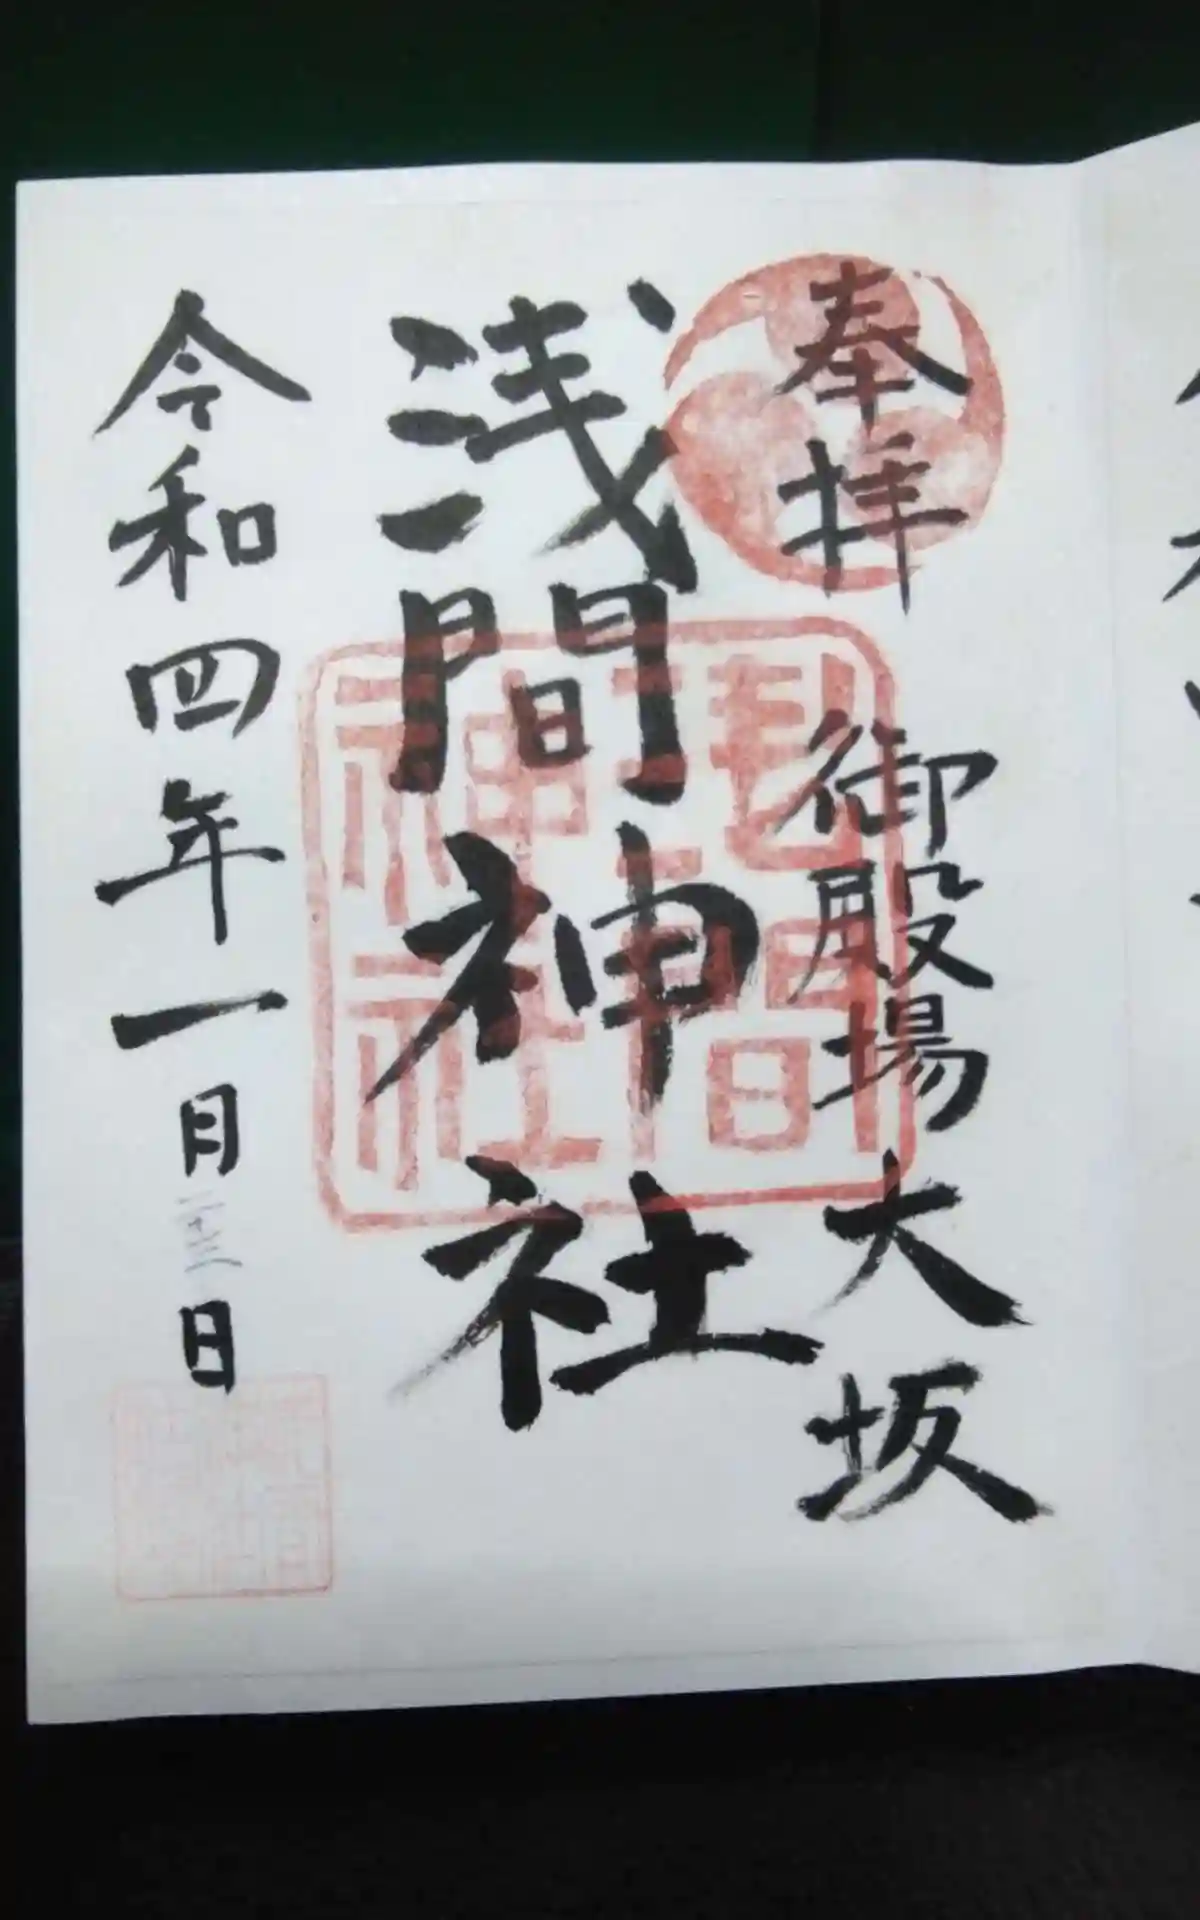 奉拝
御殿場大坂
浅間神社
浅間神社
令和四年一月二十三日